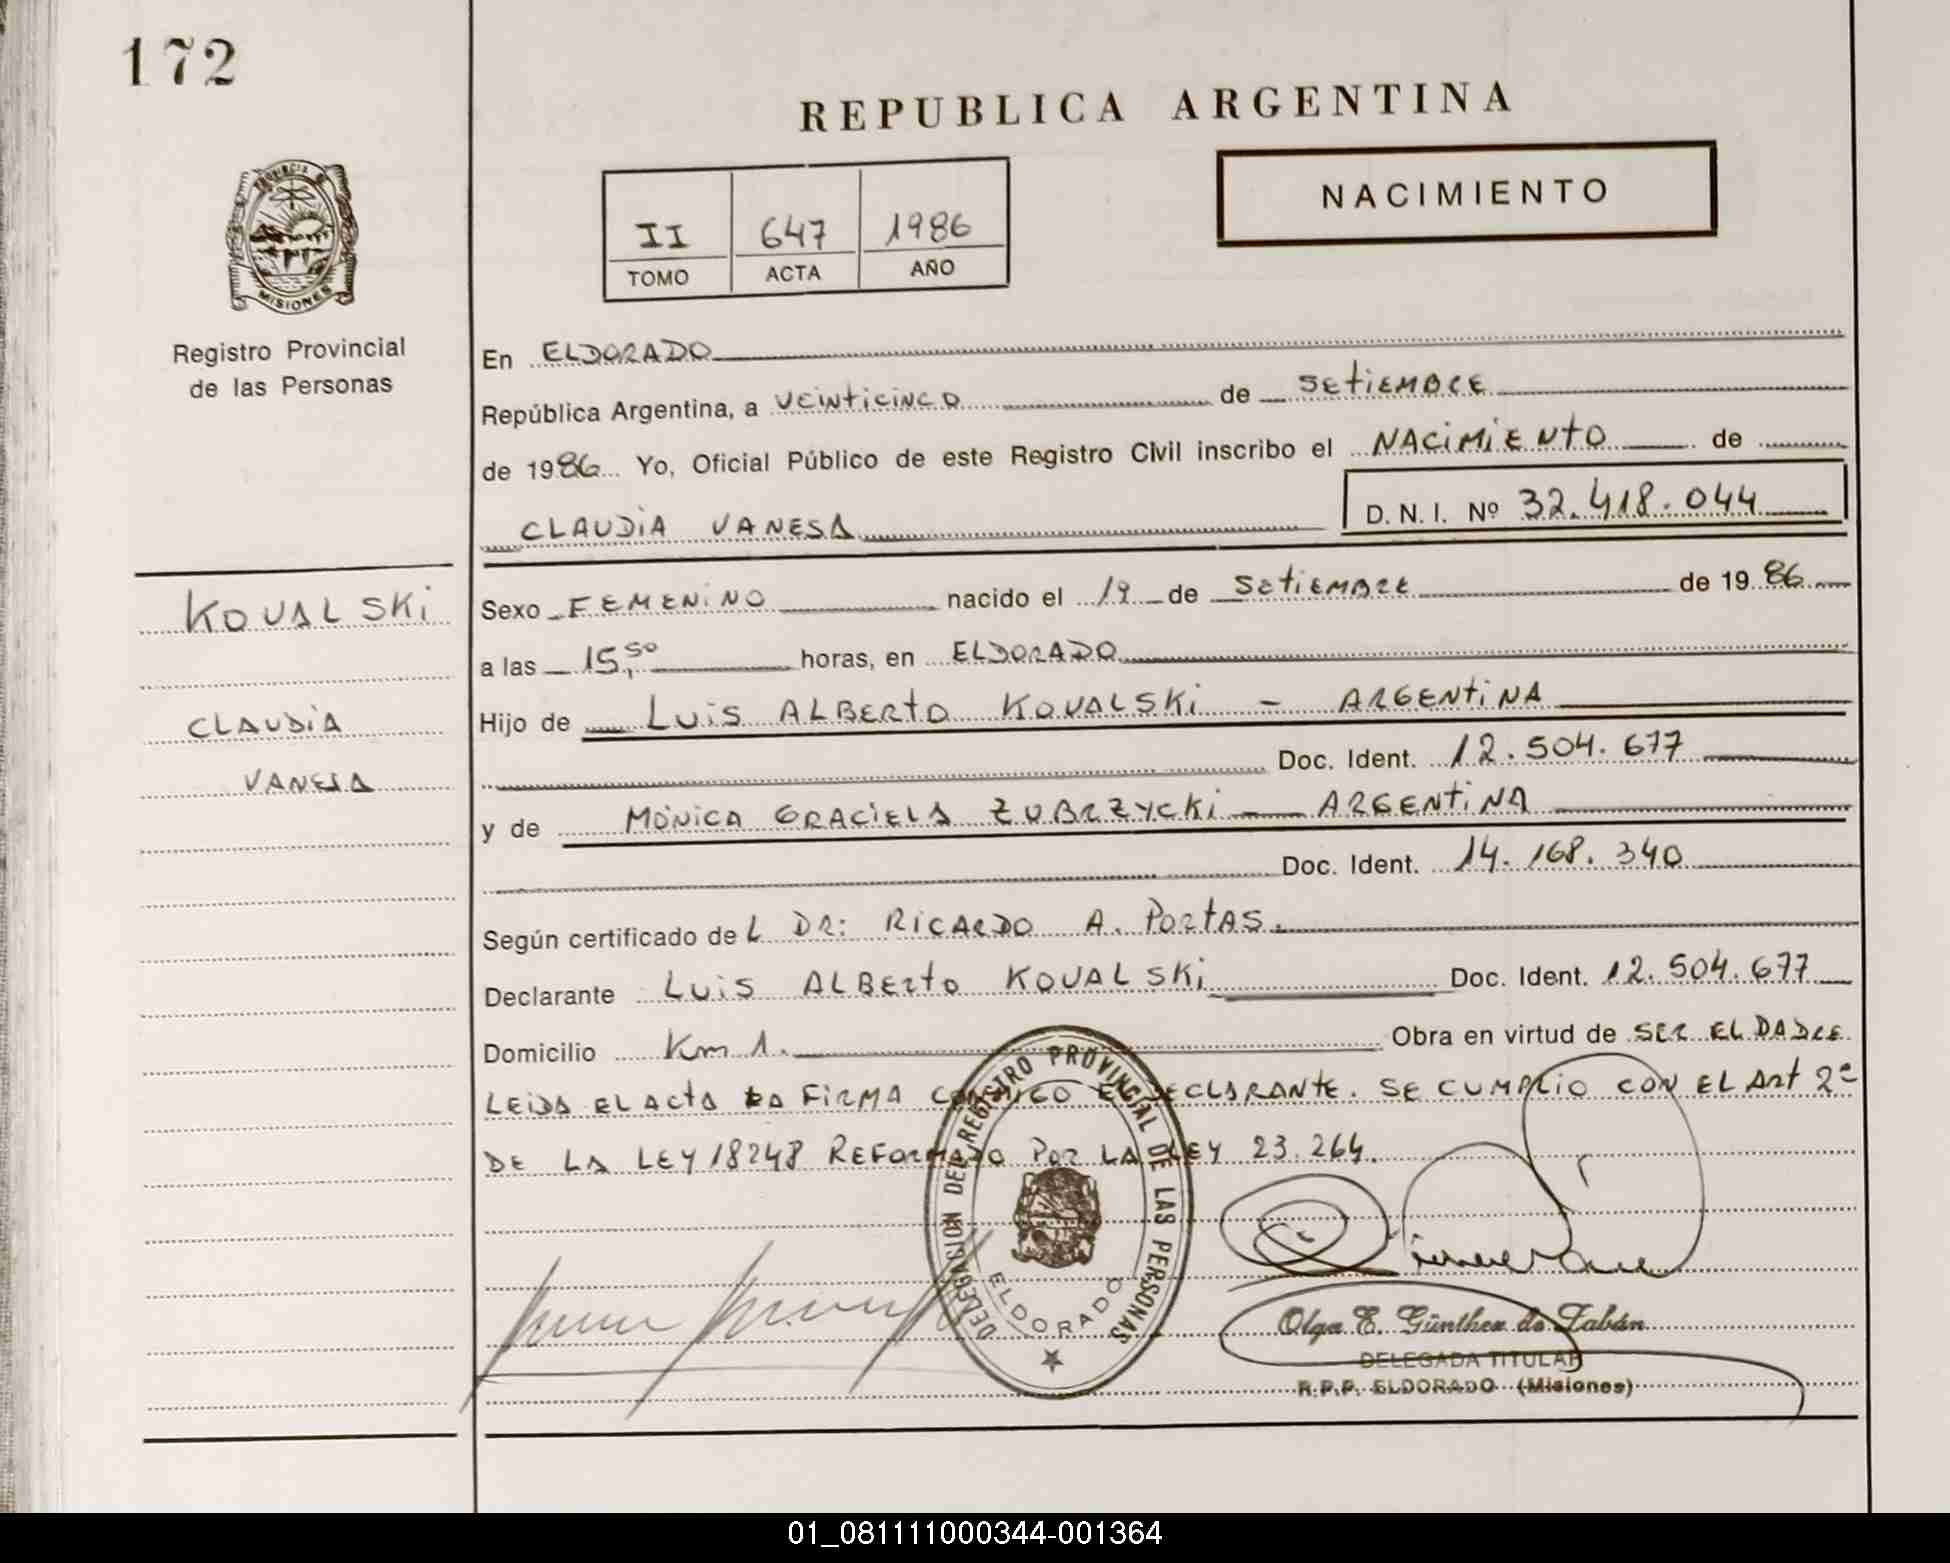 172
REPUBLICA ARGENTINA
NACIMIENTO
II 647 1986
TOMO ACTA AÑO
PROVINCIA DE
MISIONES
Registro Provincial
de las Personas
En ELDORADO
República Argentina, a VEINTICINCO de SETIEMBRE
de 1986 Yo, Oficial Público de este Registro Civil inscribo el NACIMIENTO de
CLAUDIA VANESA D. N. I. Nº 32.418.044
KOVALSKI
CLAUDIA
VANESA
Sexo FEMENINO nacido el 19 de SETIEMBRE de 1986
a las 15,50 horas, en ELDORADO
Hijo de LUIS ALBERTO KOVALSKI - ARGENTINA
Doc. Ident. 12.504.677
y de MÓNICA GRACIELA ZUBRZYCKI — ARGENTINA
Doc. Ident. 14.168.340
Según certificado del DR: RICARDO A. PORTAS.
Declarante LUIS ALBERTO KOVALSKI Doc. Ident. 12.504.677
Domicilio Km 1. Obra en virtud de SER EL PADRE
LEIDA EL ACTA LA FIRMA CONMIGO EL DECLARANTE. SE CUMPLIO CON EL ART 2º
DE LA LEY 18248 REFORMADO POR LA LEY 23.264.
DELEGACION DEL REGISTRO PROVINCIAL DE LAS PERSONAS
ELDORADO
Olga E. Günther de Zabán
DELEGADA TITULAR
R.P.P. ELDORADO (Misiones)
01_081111000344-001364